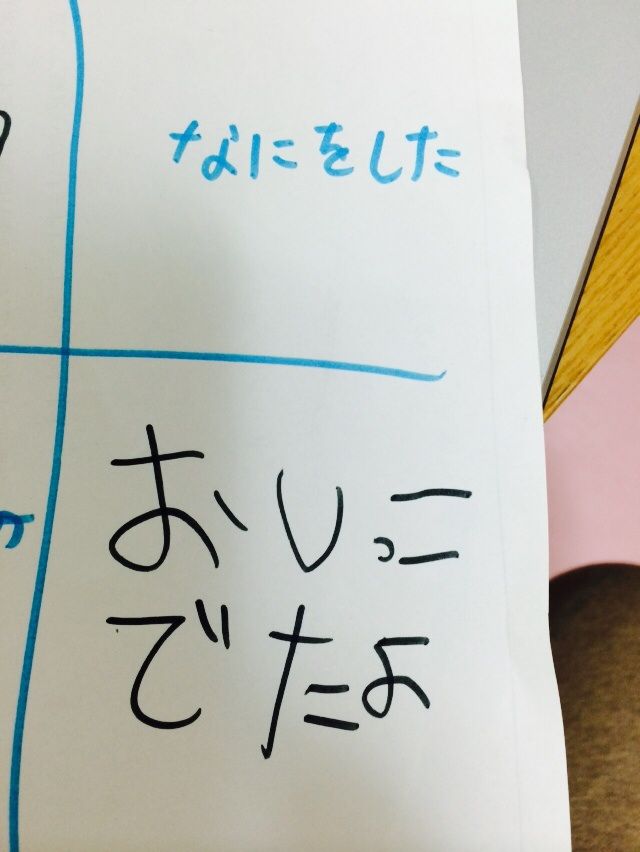 なにをした
おしっこ
でたよ